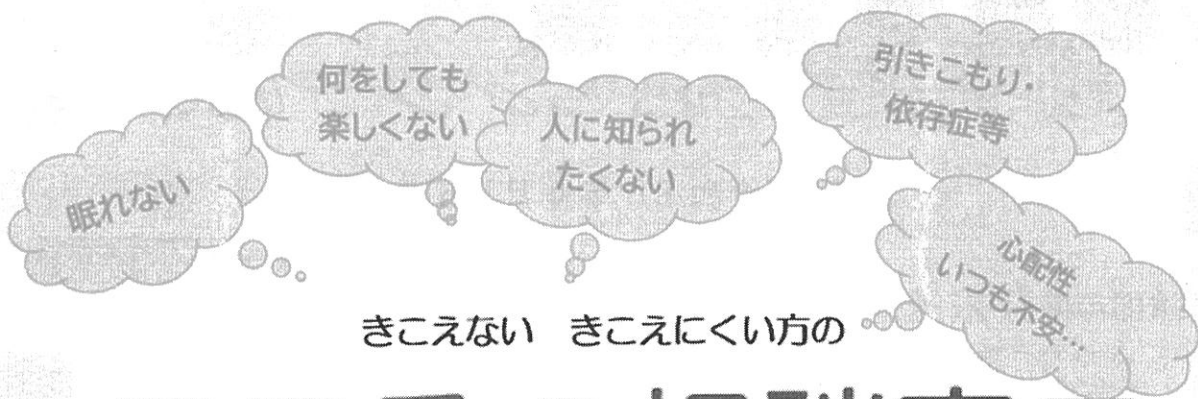 眠れない
何をしても
楽しくない
人に知られ
たくない
引きこもり・
依存症等
心配性
いつも不安…
きこえない きこえにくい方の